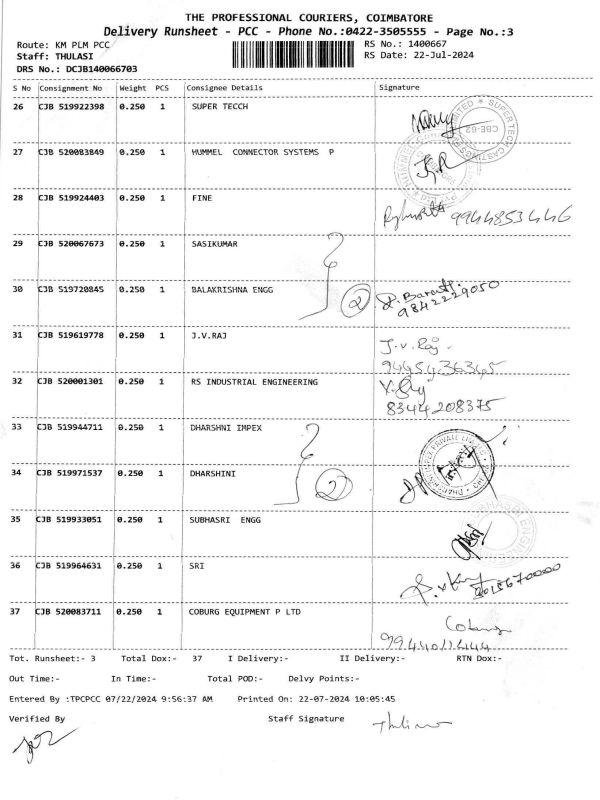 THE PROFESSIONAL COURIERS, COIMBATORE
Delivery Runsheet - PCC - Phone No.:0422-3505555 - Page No.:3
Route: KM PLM PCC RS No.: 1400667
Staff: THULASI RS Date: 22-Jul-2024
DRS No.: DCJB140066703
S No Consignment No Weight PCS Consignee Details Signature
26 CJB 519922398 0.250 1 SUPER TECCH
27 CJB 520083849 0.250 1 HUMMEL CONNECTOR SYSTEMS P
28 CJB 519924403 0.250 1 FINE 9944853446
29 CJB 520067673 0.250 1 SASIKUMAR
30 CJB 519720845 0.250 1 BALAKRISHNA ENGG 2
9842229050
31 CJB 519619778 0.250 1 J.V.RAJ J.V. Raj
9445436345
32 CJB 520001301 0.250 1 RS INDUSTRIAL ENGINEERING
8344208375
33 CJB 519944711 0.250 1 DHARSHNI IMPEX
34 CJB 519971537 0.250 1 DHARSHINI 2
35 CJB 519933051 0.250 1 SUBHASRI ENGG
36 CJB 519964631 0.250 1 SRI
37 CJB 520083711 0.250 1 COBURG EQUIPMENT P LTD Coburg
Tot. Runsheet:- 3 Total Dox:- 37 I Delivery:- II Delivery:- RTN Dox:-
Out Time:- In Time:- Total POD:- Delvy Points:-
Entered By :TPCPCC 07/22/2024 9:56:37 AM Printed On: 22-07-2024 10:05:45
Verified By Staff Signature